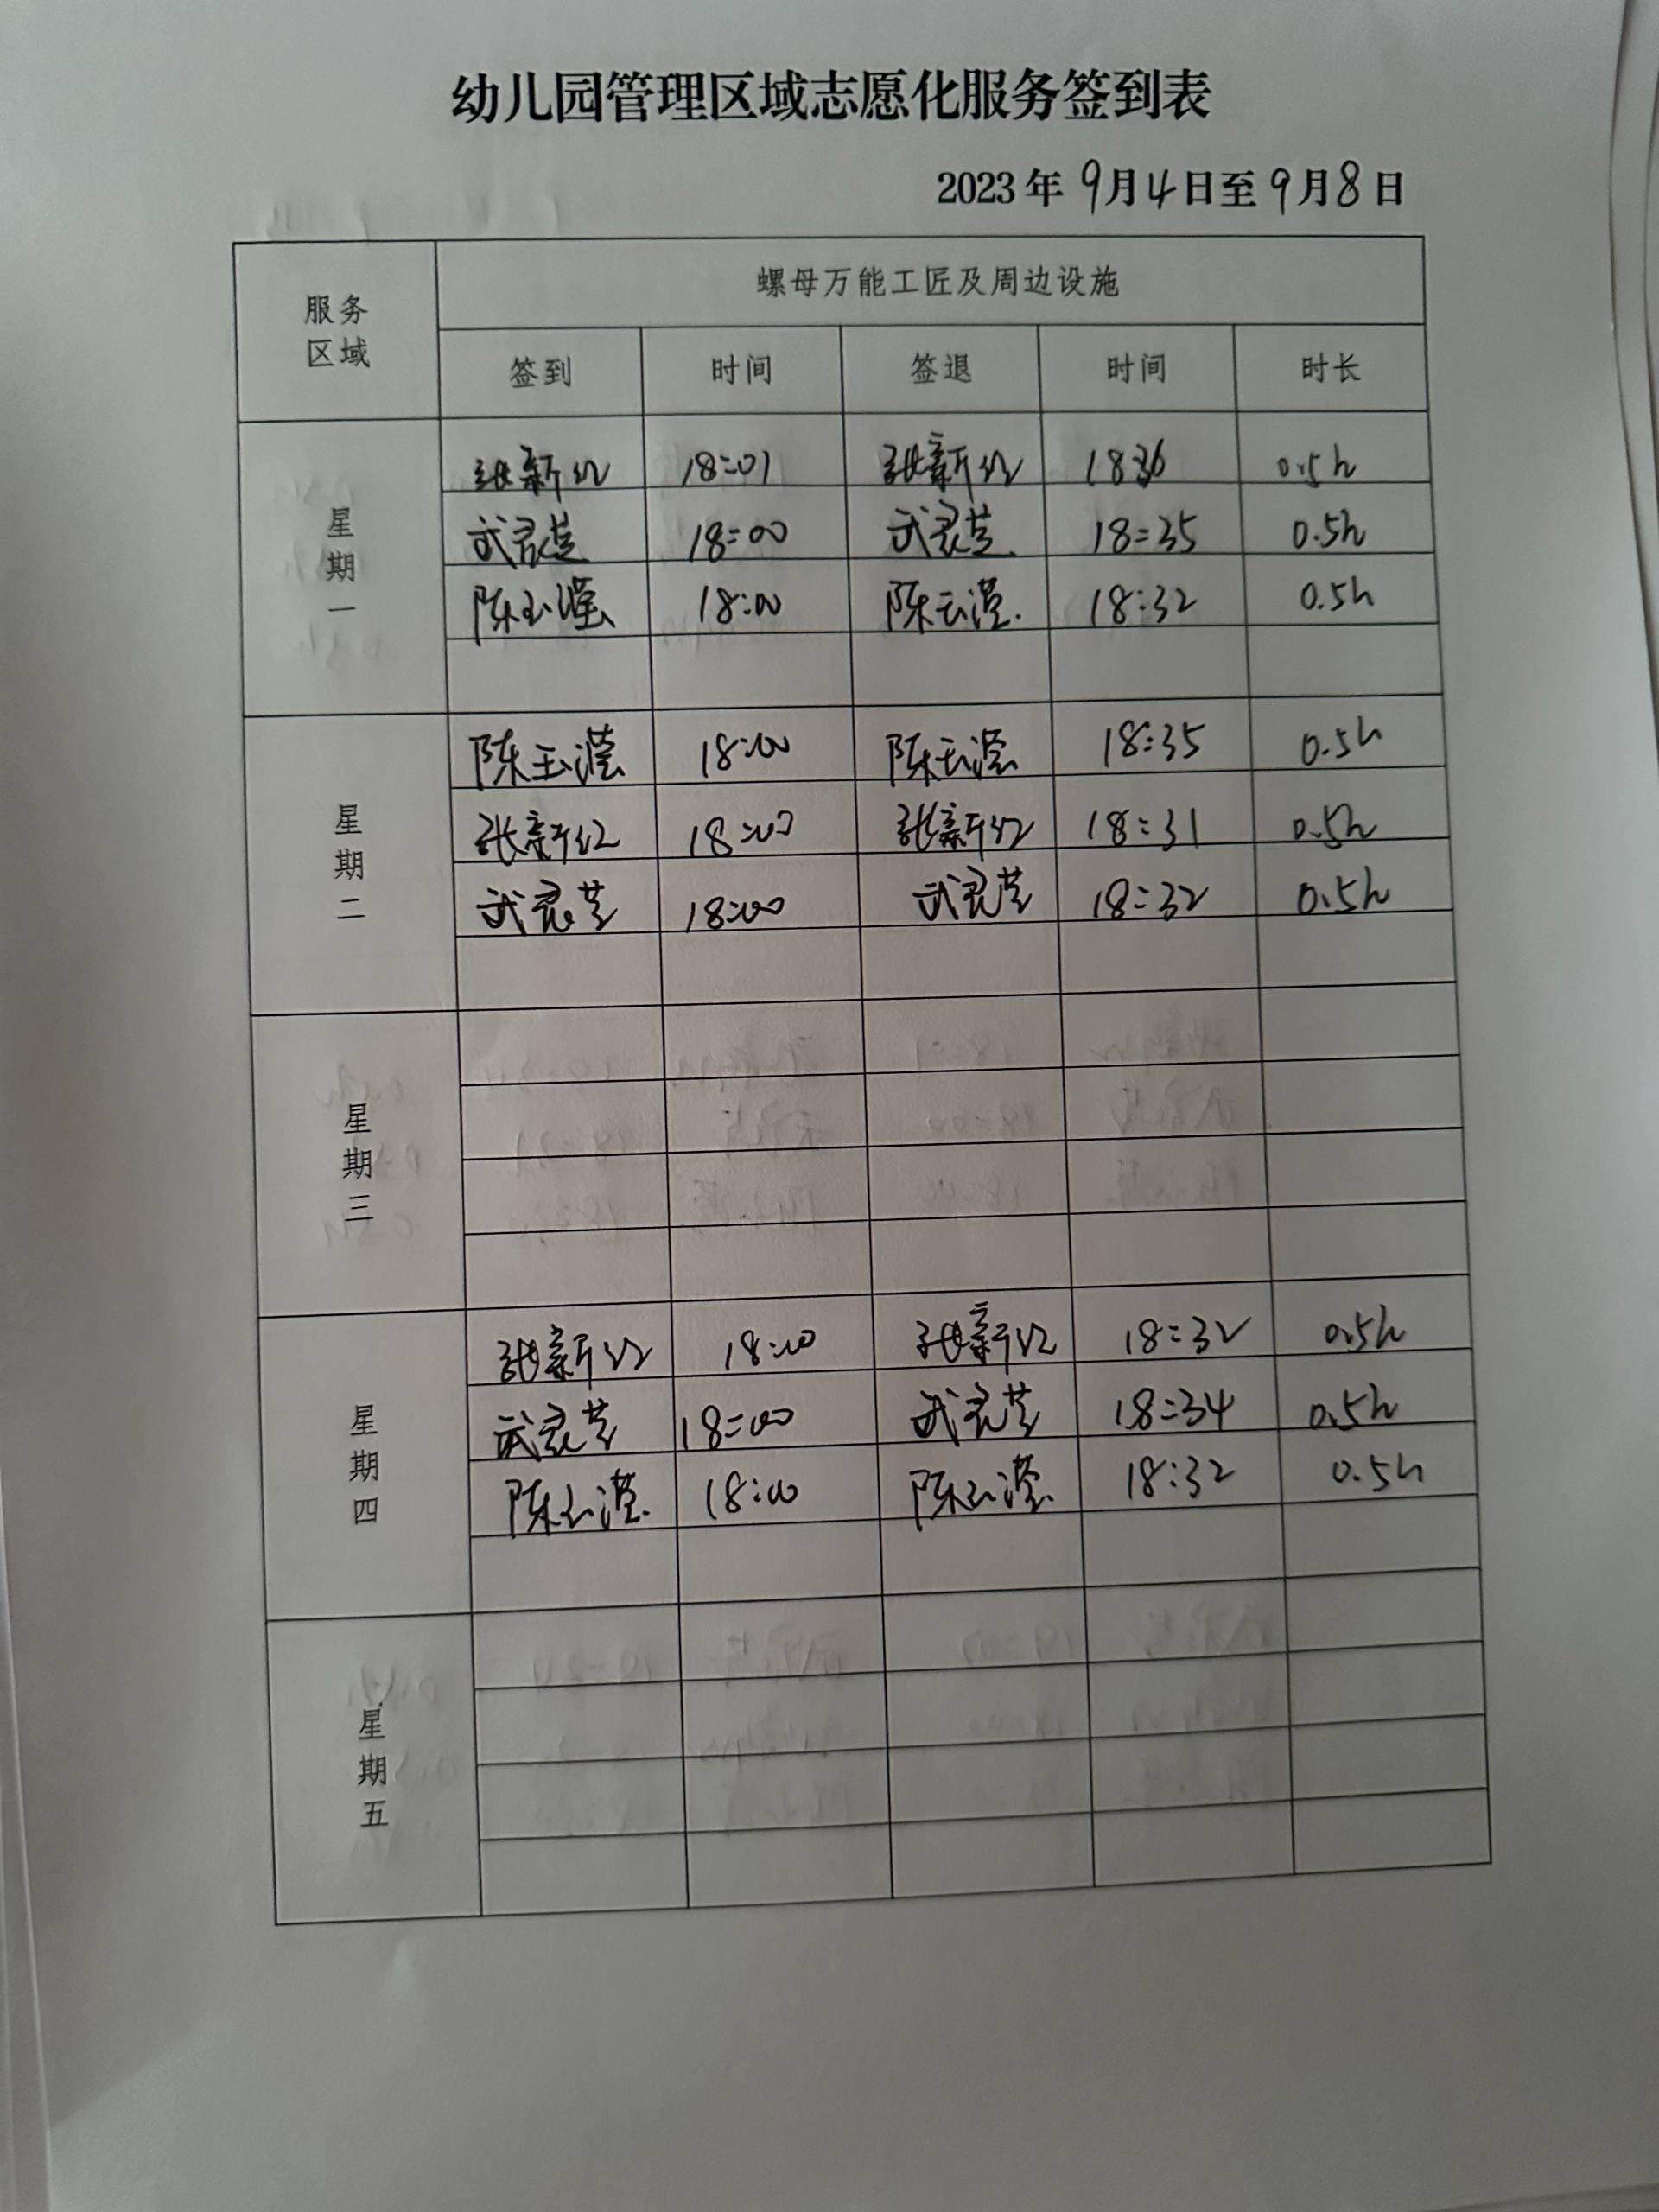 幼儿园管理区域志愿化服务签到表
2023年 9月4日至9月8日
服务区域 螺母万能工匠及周边设施
签到 时间 签退 时间 时长
星期一
张新红 18:01 张新红 18:36 0.5h
武灵芝 18:00 武灵芝 18:35 0.5h
陈玉滢 18:00 陈玉滢 18:32 0.5h
星期二
陈玉滢 18:00 陈玉滢 18:35 0.5h
张新红 18:00 张新红 18:31 0.5h
武灵芝 18:00 武灵芝 18:32 0.5h
星期三
星期四
张新红 18:00 张新红 18:32 0.5h
武灵芝 18:00 武灵芝 18:34 0.5h
陈玉滢 18:00 陈玉滢 18:32 0.5h
星期五